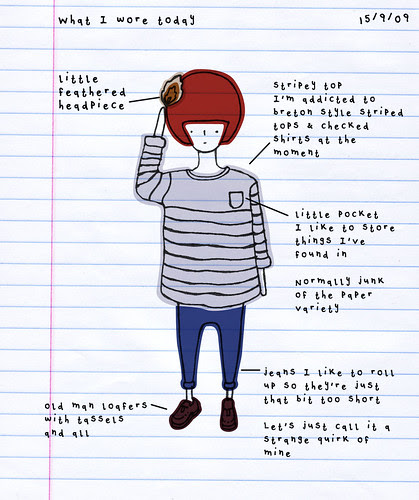 What I wore today
15/9/09
little
feathered
headpiece
Stripey top
I'm addicted to
breton style striped
tops & checked
shirts at the
moment
little pocket
I like to store
things I've
found in
Normally junk
of the paper
variety
jeans I like to roll
up so they're just
that bit too short
old man loafers
with tassels
and all
Let's just call it a
strange quirk of
mine